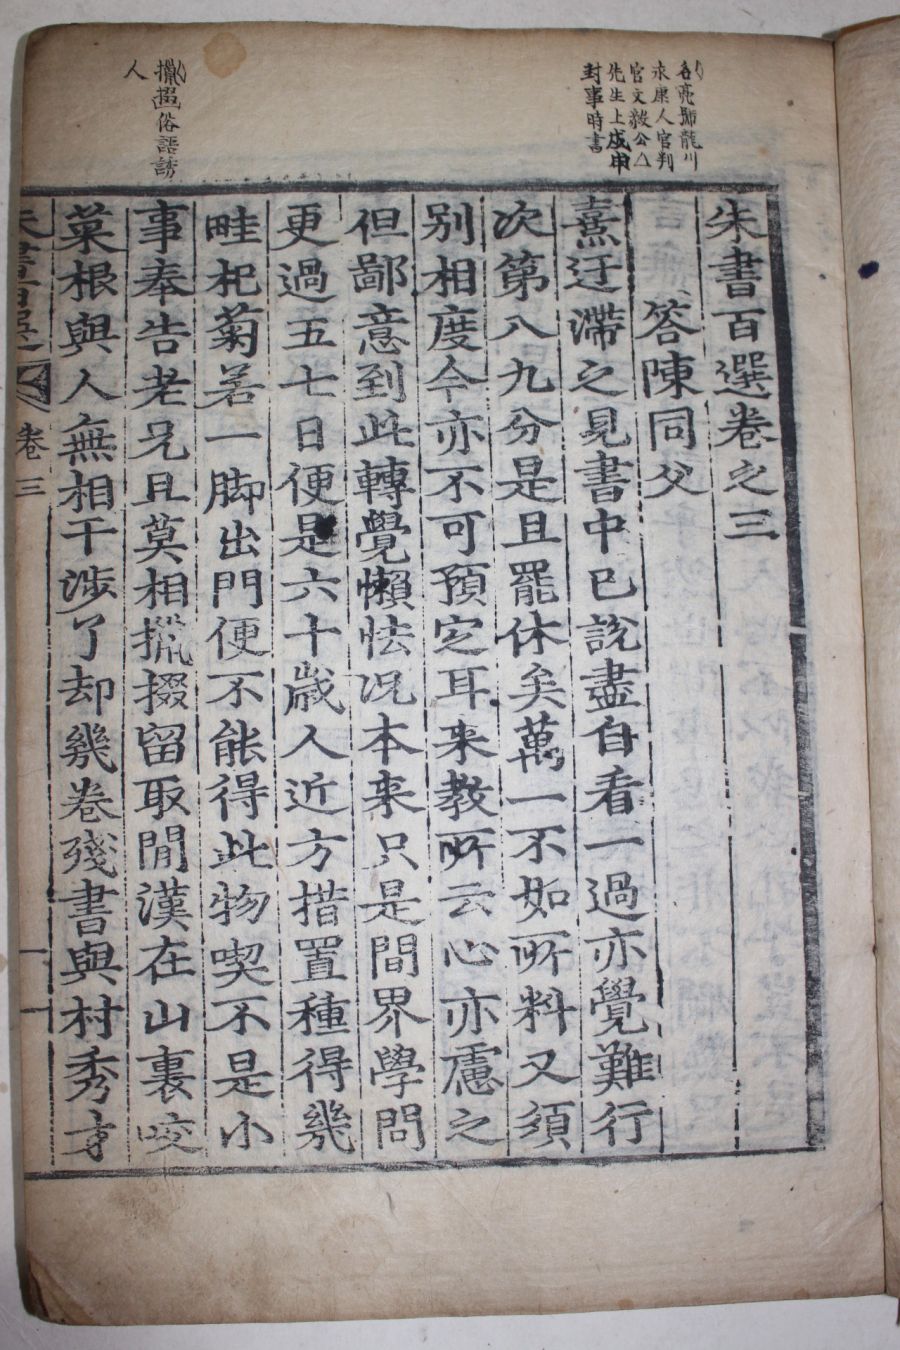 名亮號龍川
永康人官判
官文毅公
先生上戊申
封事時書
攛掇俗語誘
人
朱書百選卷之三
答陳同父
熹迂滯之見書中已說盡自看一過亦覺難行
次第八九分是且罷休矣萬一不如所料又須
别相度今亦不可預定耳来教所云心亦慮之
但鄙意到此轉覺懶怯况本来只是間界學問
更過五七日便是六十歲人近方措置種得幾
畦杞菊若一脚出門便不能得此物喫不是小
事奉告老兄且莫相攛掇留取閒漢在山裏咬
菜根與人無相干涉了却幾卷殘書與村秀才
朱書百選
卷三
一